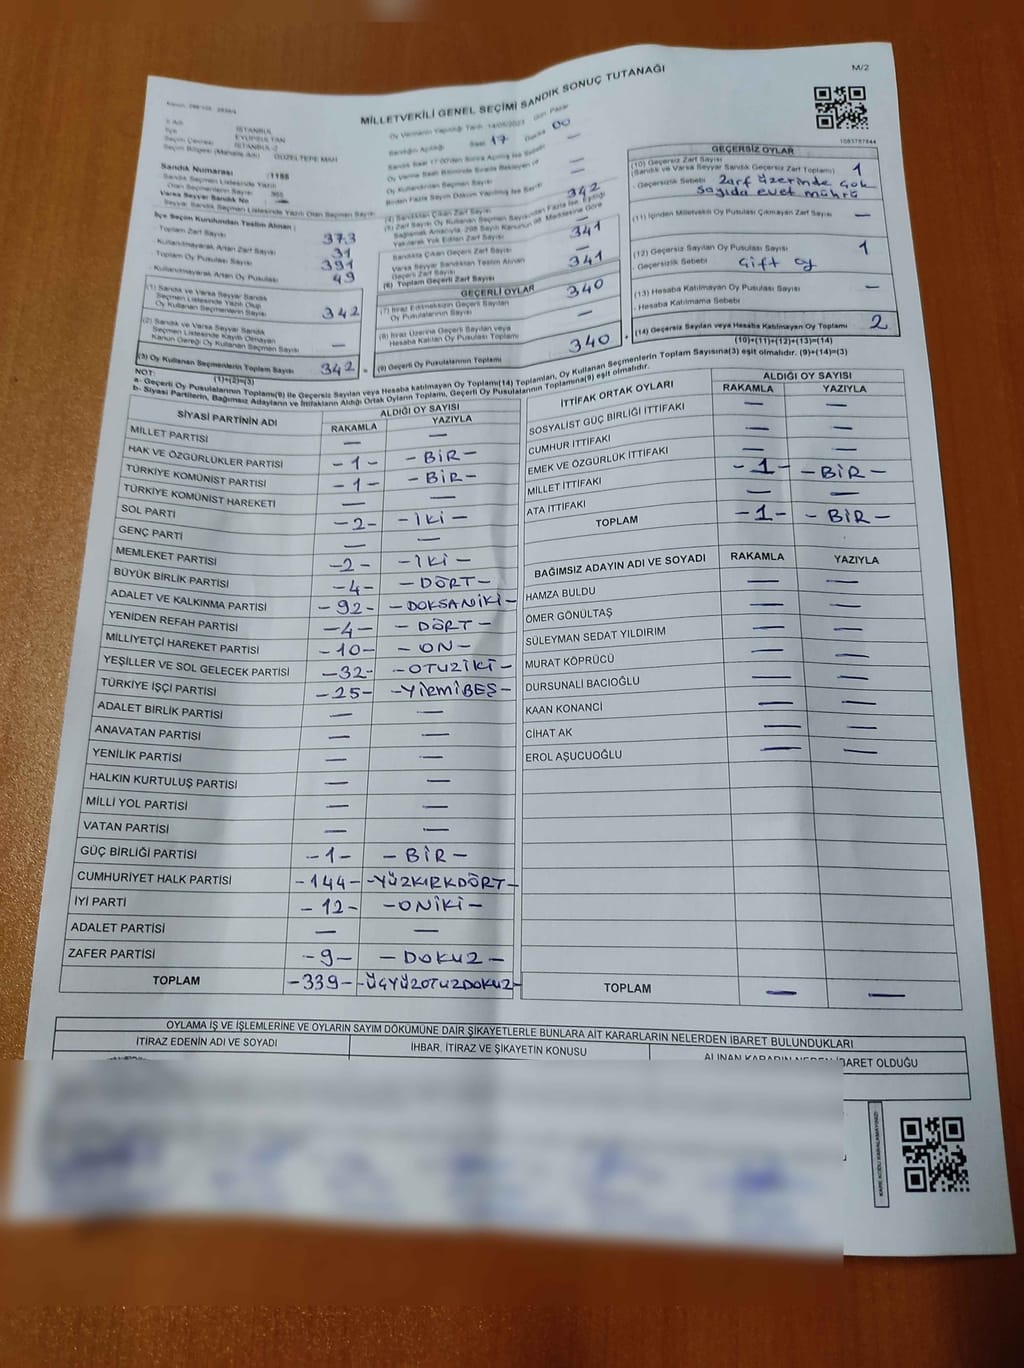 MİLLETVEKİLİ GENEL SEÇİMİ SANDIK SONUÇ TUTANAĞI
M/2
İSTANBUL
EYÜPSULTAN
İSTANBUL-2
GÜZELTEPE MAH
Sandık Numarası :1188
Sandık Seçmen Listesinde Yazılı
Olan Seçmenlerin Sayısı
Varsa Seyyar Sandık No
Seyyar Sandık Seçmen Listesinde Yazılı Olan Seçmen Sayısı
İlçe Seçim Kurulundan Teslim Alınan :
Toplam Zarf Sayısı 373
Kullanılmayarak Artan Zarf Sayısı 31
Toplam Oy Pusulası Sayısı 391
Kullanılmayarak Artan Oy Pusulası 49
(1) Sandık ve Varsa Seyyar Sandık
Seçmen Listesinde Yazılı Olup
Oy Kullanan Seçmenlerin Sayısı 342
(2) Sandık ve Varsa Seyyar Sandık
Seçmen Listesinde Kayıtlı Olmayan
Kanun Gereği Oy Kullanan Seçmen Sayısı —
(3) Oy Kullanan Seçmenlerin Toplam Sayısı 342
(1)+(2)=(3)
Oy Vermenin Yapıldığı Tarih 14/05/2023 Gün Pazar
Sandığın Açıldığı Saat 17 Dakika 00
342
(4) Sandıktan Çıkan Zarf Sayısı
341
Sandıkta Çıkan Geçerli Zarf Sayısı
Varsa Seyyar Sandıktan Teslim Alınan
Geçerli Zarf Sayısı
(6) Toplam Geçerli Zarf Sayısı 341
GEÇERLİ OYLAR
(7) İtiraz Edilmeksizin Geçerli Sayılan
Oy Pusulalarının Sayısı 340
(8) İtiraz Üzerine Geçerli Sayılan veya
Hesaba Katılan Oy Pusulası Toplamı —
(9) Geçerli Oy Pusulalarının Toplamı 340
1083787844
GEÇERSİZ OYLAR
(10) Geçersiz Zarf Sayısı
(Sandık ve Varsa Seyyar Sandık Geçersiz Zarf Toplamı) 1
Geçersizlik Sebebi Zarf üzerinde çok
sayıda evet mührü
(11) İçinden Milletvekili Oy Pusulası Çıkmayan Zarf Sayısı —
(12) Geçersiz Sayılan Oy Pusulası Sayısı 1
Geçersizlik Sebebi Çift oy
(13) Hesaba Katılmayan Oy Pusulası Sayısı —
Hesaba Katılmama Sebebi
(14) Geçersiz Sayılan veya Hesaba Katılmayan Oy Toplamı 2
(10)+(11)+(12)+(13)=(14)
NOT:
a- Geçerli Oy Pusulalarının Toplamı(9) ile Geçersiz Sayılan veya Hesaba katılmayan Oy Toplamı(14) Toplamları, Oy Kullanan Seçmenlerin Toplam Sayısına(3) eşit olmalıdır. (9)+(14)=(3)
b- Siyasi Partilerin, Bağımsız Adayların ve İttifakların Aldığı Ortak Oyların Toplamı, Geçerli Oy Pusulalarının Toplamına(9) eşit olmalıdır.
SİYASİ PARTİNİN ADI ALDIĞI OY SAYISI
RAKAMLA YAZIYLA
MİLLET PARTİSİ — —
HAK VE ÖZGÜRLÜKLER PARTİSİ -1- -BİR-
TÜRKİYE KOMÜNİST PARTİSİ -1- -BİR-
TÜRKİYE KOMÜNİST HAREKETİ — —
SOL PARTİ -2- -İKİ-
GENÇ PARTİ — —
MEMLEKET PARTİSİ -2- -İKİ-
BÜYÜK BİRLİK PARTİSİ -4- -DÖRT-
ADALET VE KALKINMA PARTİSİ -92- -DOKSANİKİ-
YENİDEN REFAH PARTİSİ -4- -DÖRT-
MİLLİYETÇİ HAREKET PARTİSİ -10- -ON-
YEŞİLLER VE SOL GELECEK PARTİSİ -32- -OTUZİKİ-
TÜRKİYE İŞÇİ PARTİSİ -25- -YİRMİBEŞ-
ADALET BİRLİK PARTİSİ — —
ANAVATAN PARTİSİ — —
YENİLİK PARTİSİ — —
HALKIN KURTULUŞ PARTİSİ — —
MİLLİ YOL PARTİSİ — —
VATAN PARTİSİ — —
GÜÇ BİRLİĞİ PARTİSİ -1- -BİR-
CUMHURİYET HALK PARTİSİ -144- -YÜZKIRKDÖRT-
İYİ PARTİ -12- -ONİKİ-
ADALET PARTİSİ — —
ZAFER PARTİSİ -9- -DOKUZ-
TOPLAM -339- -ÜÇYÜZOTUZDOKUZ-
İTTİFAK ORTAK OYLARI ALDIĞI OY SAYISI
RAKAMLA YAZIYLA
SOSYALİST GÜÇ BİRLİĞİ İTTİFAKI — —
CUMHUR İTTİFAKI — —
EMEK VE ÖZGÜRLÜK İTTİFAKI — —
MİLLET İTTİFAKI -1- -BİR-
ATA İTTİFAKI — —
TOPLAM -1- -BİR-
BAĞIMSIZ ADAYIN ADI VE SOYADI RAKAMLA YAZIYLA
HAMZA BULDU — —
ÖMER GÖNÜLTAŞ — —
SÜLEYMAN SEDAT YILDIRIM — —
MURAT KÖPRÜCÜ — —
DURSUNALİ BACIOĞLU — —
KAAN KONANCİ — —
CİHAT AK — —
EROL AŞUCUOĞLU — —
TOPLAM — —
OYLAMA İŞ VE İŞLEMLERİNE VE OYLARIN SAYIM DÖKÜMÜNE DAİR ŞİKAYETLERLE BUNLARA AİT KARARLARIN NELERDEN İBARET BULUNDUKLARI
İTİRAZ EDENİN ADI VE SOYADI İHBAR, İTİRAZ VE ŞİKAYETİN KONUSU ALINAN KARARIN NEDEN İBARET OLDUĞU
KARE KODU KARALAMAYINIZ!